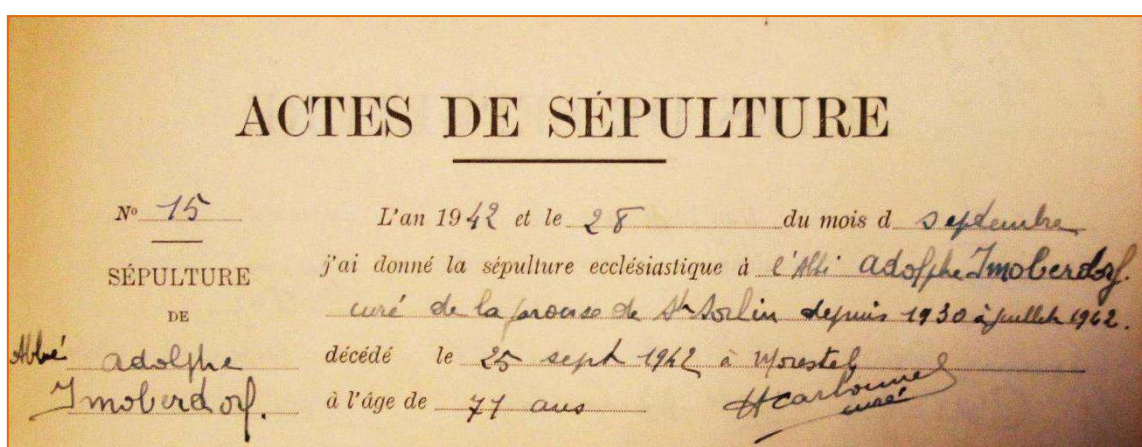 ACTES DE SÉPULTURE
Nº 15
SÉPULTURE
DE
Abbé adolphe
Imoberdorf.
L'an 1942 et le 28 du mois d septembre
j'ai donné la sépulture ecclésiastique à l'Abbé adolphe Imoberdorf.
curé de la paroisse de St Sorlin depuis 1930 à juillet 1942.
décédé le 25 sept 1942 à Morestel
à l'âge de 71 ans
H Carbonnel
curé